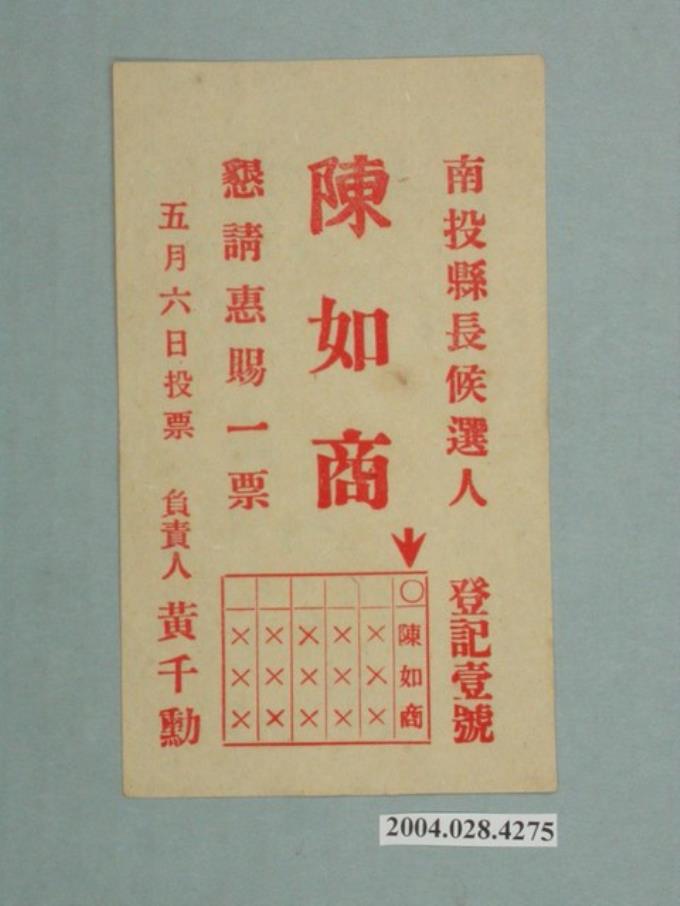 南投縣長候選人 登記壹號
陳如商
懇請惠賜一票
五月六日投票 負責人 黃千勳
○陳如商
×××
×××
×××
×××
×××
2004.028.4275